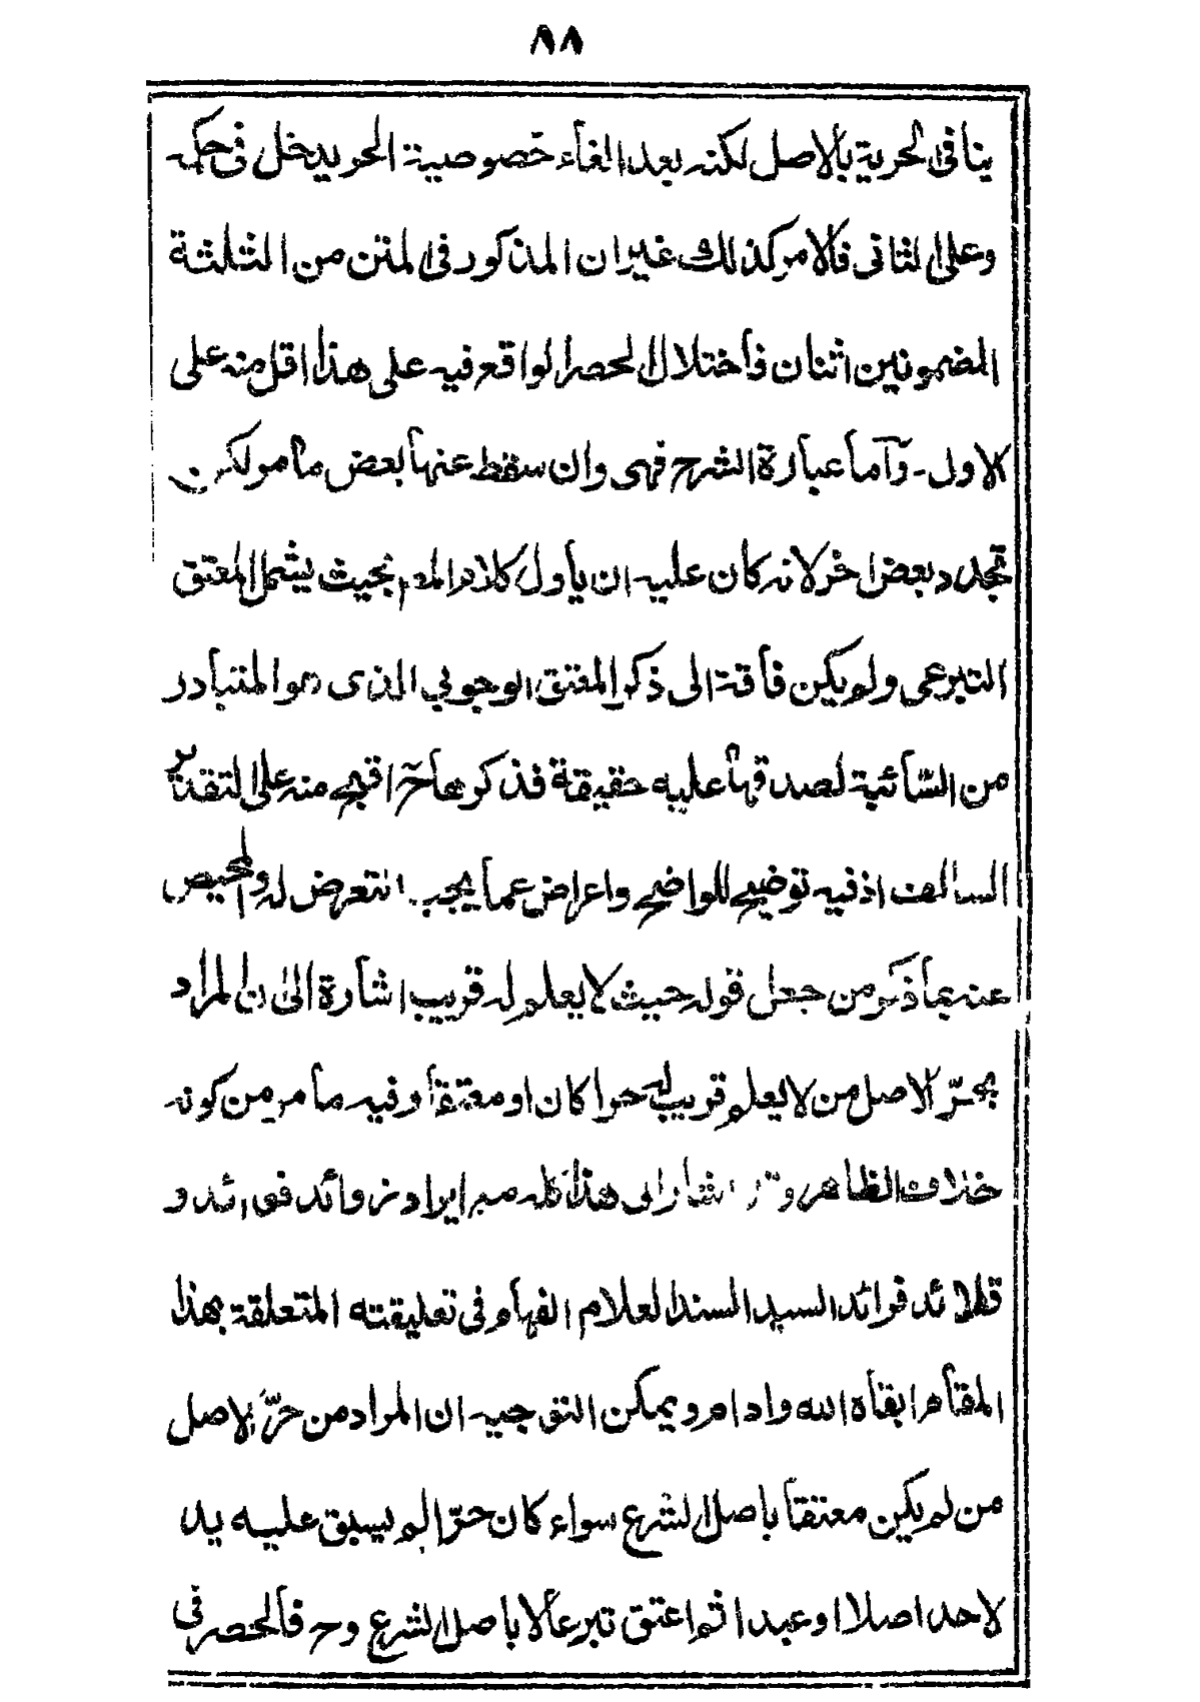 ٨٨
ينافى الحرية بالاصل لكنه بعد الغاء خصوصية الحر يدخل فى حكمه
وعلى الثانى فالامر كذلك غير ان المذكور فى المتن من الثلثة
المضمونين اثنان فاختلال الحصر الواقع فيه على هذا اقل منه على
الاول ـ وآما عبارة الشرح فهى وان سقط عنها بعض ما مر لكن
تجدد بعض اخر لانه كان عليه ان ياول كلام المصم بحيث يشمل المعتق
التبرعى ولم يكن فاقة الى ذكر المعتق الوجوبي الذى هو المتبادر
من السّائبة لصدقها عليه حقيقة فذكرها ح اقبح منه على التقدير
السالف اذ فيه توضيح للواضح واعراض عما يجب التعرض له والمحيص
عنه بما ذكر من جعل قوله حيث لا يعلم له قريب اشارة الى ان المراد
بحرّ الاصل من لا يعلم قريب له حرا كان او معتقا وفيه ما مر من كونه
خلاف الظاهر وقد اشار الى هذا كله مبر ايراد زوائد فوائد و
قلائد فرائد السيد السند العلام الفهام فى تعليقته المتعلقة بهذا
المقام ابقاه الله وادام ويمكن التوجيه ان المراد من حرّ الاصل
من لم يكن معتقا باصل الشرع سواء كان حرّا لم يسبق عليه يد
لاحد اصلا او عبدا ثم اعتق تبرعا لا باصل الشرع وح فالحصر فى